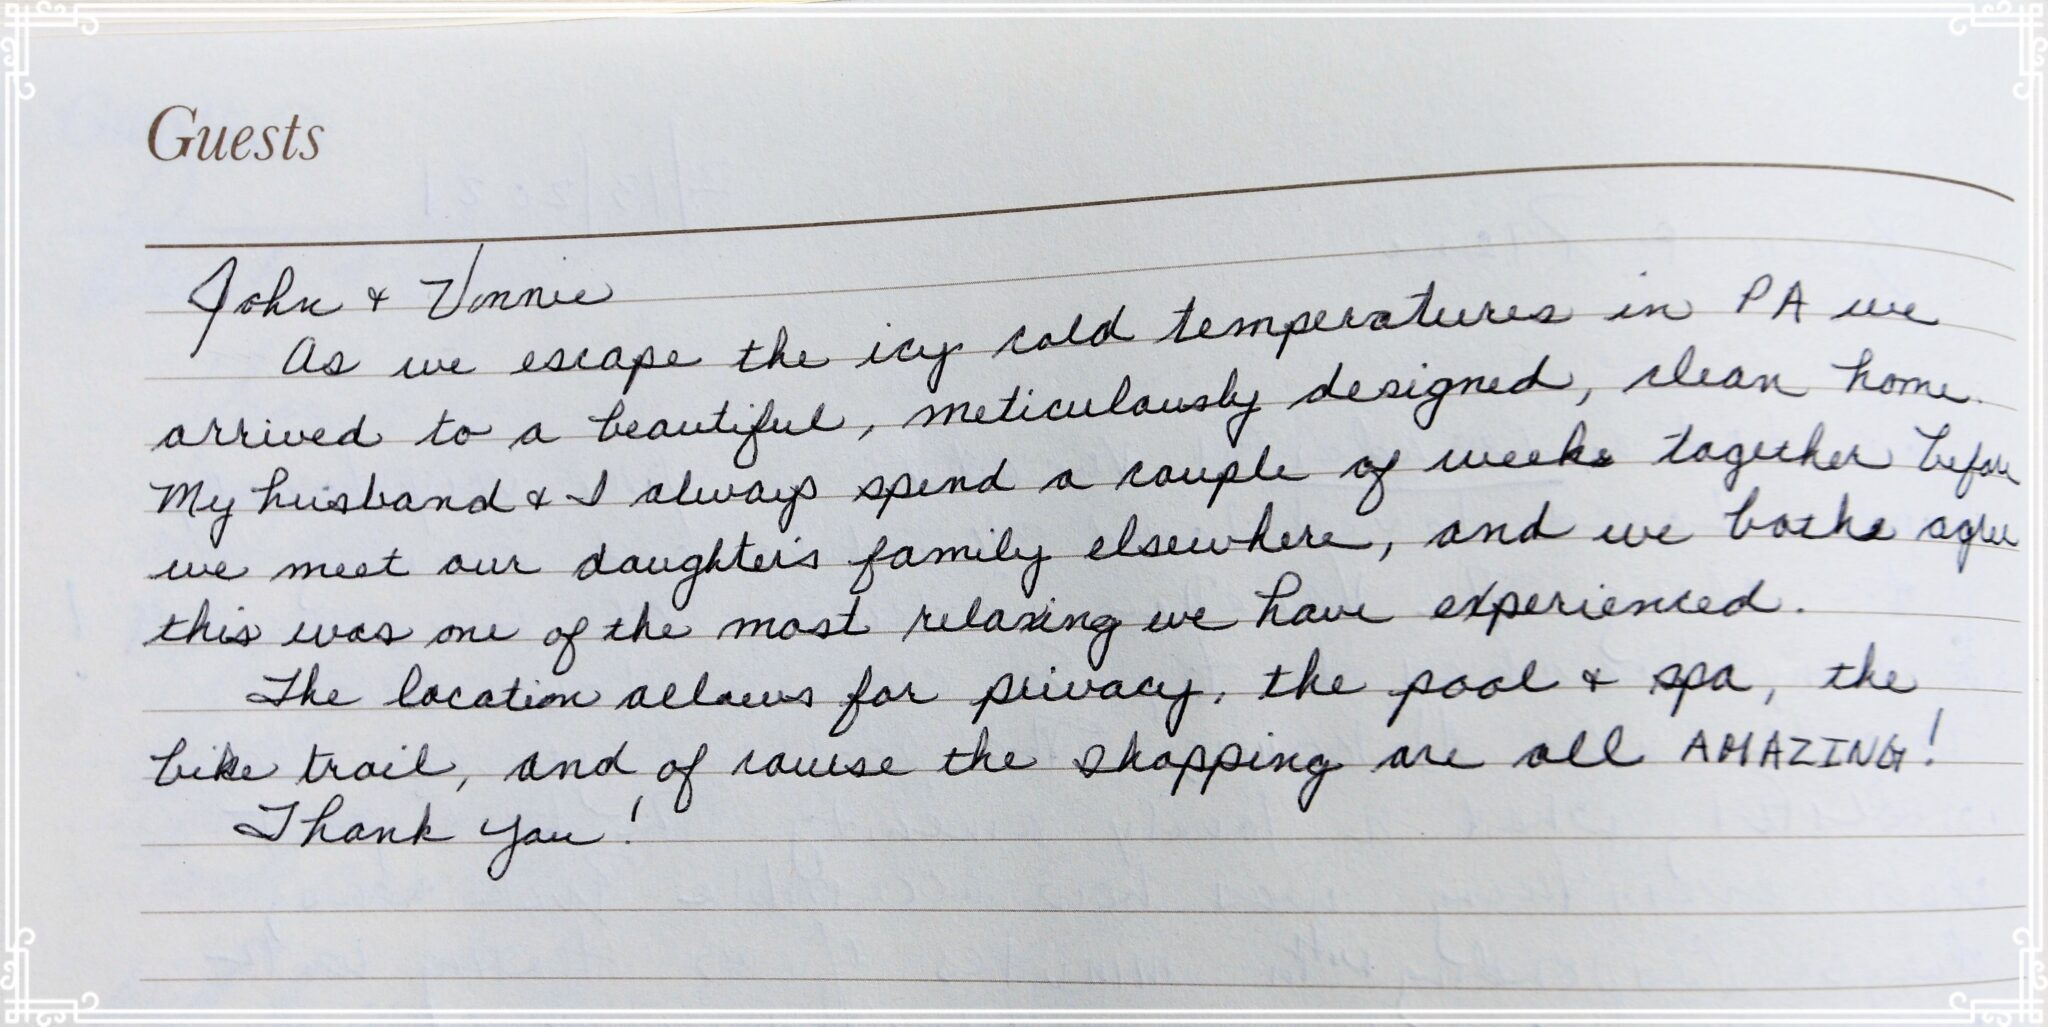 Guests
John & Vonnie
As we escape the icy cold temperatures in PA we
arrived to a beautiful, meticulously designed, clean home.
My husband & I always spend a couple of weeks together before
we meet our daughter's family elsewhere, and we both agree
this was one of the most relaxing we have experienced.
The location allows for privacy, the pool & spa, the
bike trail, and of course the shopping are all AMAZING!
Thank you!